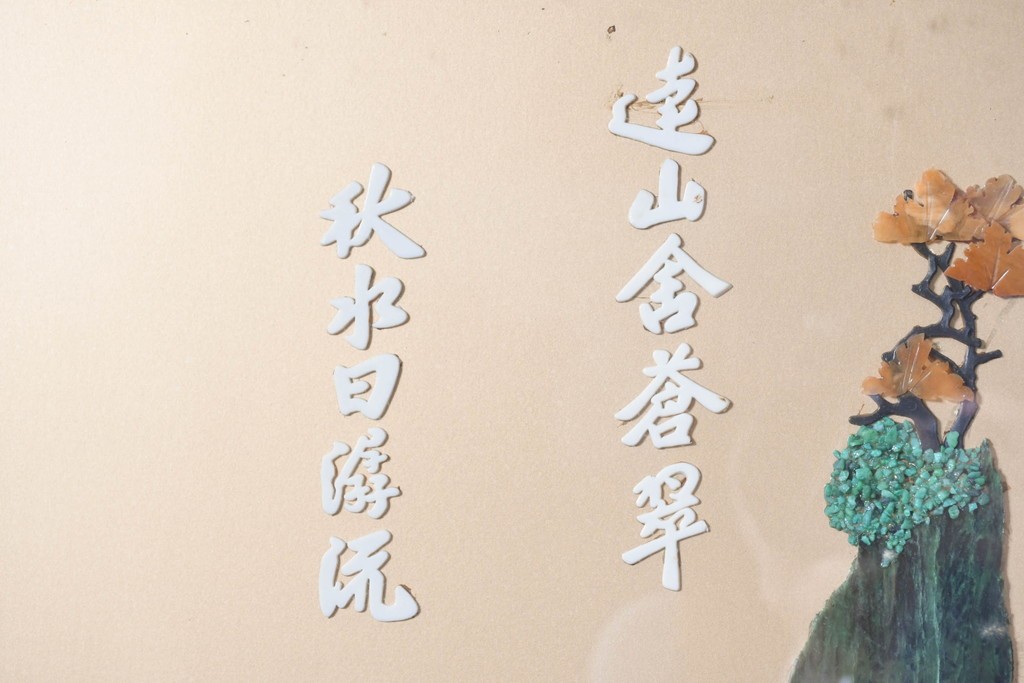 遠山含蒼翠
秋水日潺流